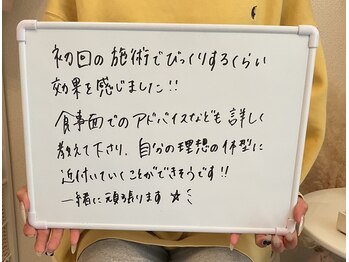 初回の施術でびっくりするくらい
効果を感じました!!
食事面でのアドバイスなども詳しく
教えて下さり、自分の理想の体型に
近付いていくことができそうです!!
一緒に頑張ります ★ミ